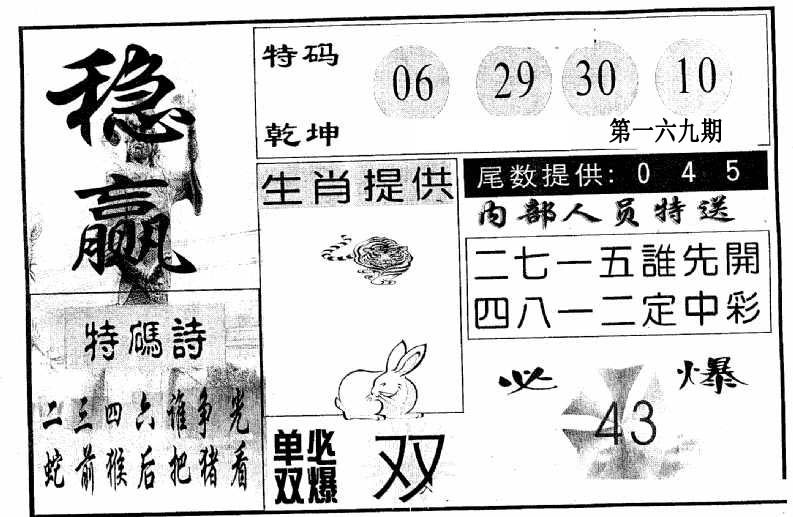 稳赢
特码
乾坤
06 29 30 10
第一六九期
生肖提供
尾数提供: 0 4 5
内部人员特送
二七一五誰先開
四八一二定中彩
特碼詩
二三四六谁争光
蛇前猴后把猪看
单双
必爆
双
必爆
43